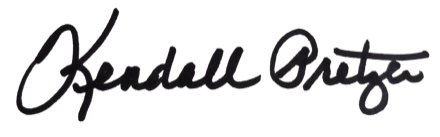 Kendall Pretzer